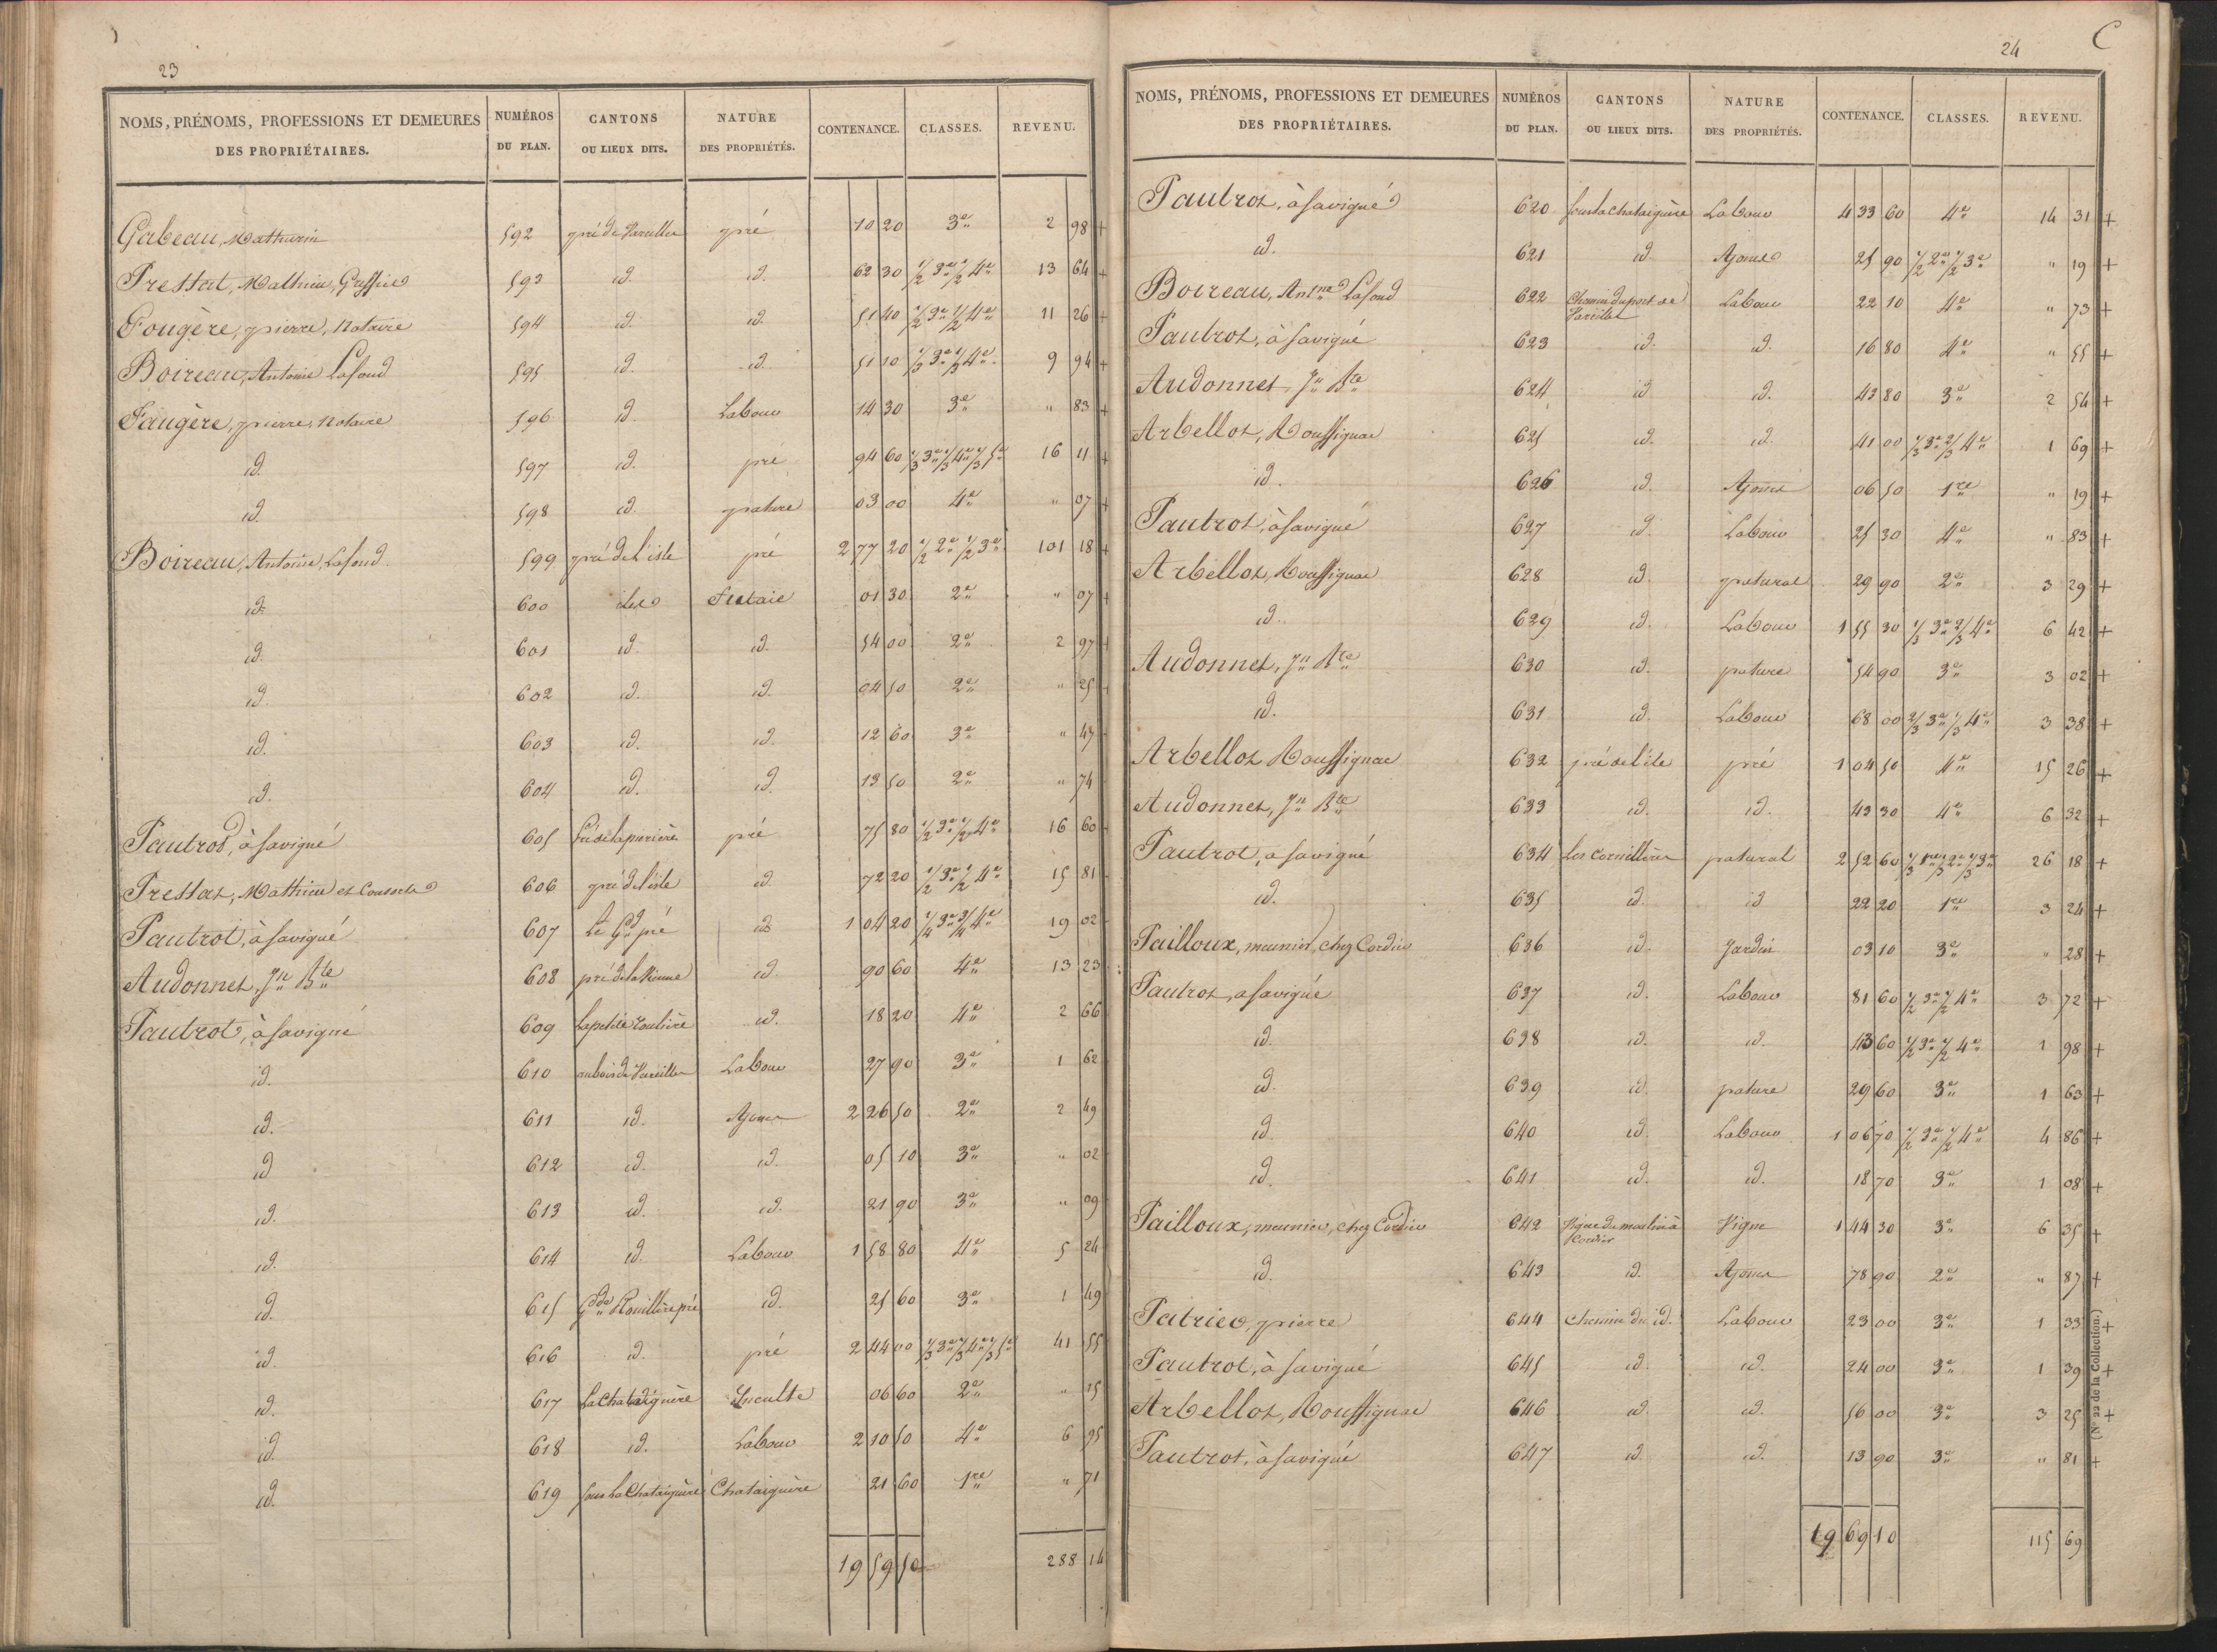 23
NOMS, PRÉNOMS, PROFESSIONS ET DEMEURES DES PROPRIÉTAIRES. NUMÉROS DU PLAN. CANTONS OU LIEUX DITS. NATURE DES PROPRIÉTÉS. CONTENANCE. CLASSES. REVENU.
Gabeau, Mathurin 592 pré de Vareilles pré 10 20 3e 2 98 +
Prestat, Mathieu, Greffier 593 id. id. 62 30 1/2 3e 1/2 4e 13 64 +
Fougère, pierre, Notaire 594 id. id. 51 40 1/2 3e 1/2 4e 11 26 +
Boireau, Antoine Lafond 595 id. id. 51 10 1/3 3e /3 4e 9 94 +
Faugère, pierre, Notaire 596 id. Labour 14 30 3e " 83 +
id. 597 id. pré 94 60 1/3 3e 1/3 4e 1/3 5e 16 11 +
id. 598 id. pature 03 00 4e " 07 +
Boireau, Antoine, Lafond 599 pré de l'isle pré 2 77 20 1/2 2e 1/2 3e 101 18 +
id. 600 iles futaie 01 30 2e " 07 +
id. 601 id. id. 54 00 2e 2 97 +
id. 602 id. id. 04 50 2e " 25
id. 603 id. id. 12 60 3e "
id. 604 id. id. 13 50 2e " 74
Pautrot, à Savigné 605 Pré de la pouvière pré 75 80 1/2 3e 1/2 4e 16 60
Prestat, Mathieu et 606 pré de l'isle id. 72 20 1/2 3e 1/2 4e 15 81
Pautrot, à Savigné 607 Le Gd pré id. 1 04 20 1/4 3e 3/4 4e 19 02
Audonnet, Jn Bte 608 pré de la id. 90 60 4e 13 23
Pautrot, à Savigné 609 La petite id. 18 20 4e 2 66
id. 610 au bois de Vareilles Labour 27 90 3e 1 62
id. 611 id. Ajoncs 2 26 50 2e 2 49
id. 612 id. id. 05 10 3e " 02
id. 613 id. id. 21 90 3e " 09
id. 614 id. Labour 1 58 80 4e 5 24
id. 615 Gde Rouillère pré id. 25 60 3e 1 49
id. 616 id. pré 2 44 00 1/3 3e 1/3 4e 1/3 5e 41 55
id. 617 La Chataignère Inculte 06 60 2e " 15
id. 618 id. Labour 2 10 50 4e 6 95
id. 619 sous La Chataignère Chataignère 21 60 1re " 71
19 59 50 288 14
24
C
NOMS, PRÉNOMS, PROFESSIONS ET DEMEURES DES PROPRIÉTAIRES. NUMÉROS DU PLAN. CANTONS OU LIEUX DITS. NATURE DES PROPRIÉTÉS. CONTENANCE. CLASSES. REVENU.
Pautrot, à Savigné 620 sous la chataignère Labour 4 33 60 4e 14 31 +
id. 621 id. Ajoncs 25 90 1/2 2e 1/2 3e " 19 +
Boireau, Antne Lafond 622 Chemin du port de Vareilles Labour 22 10 4e " 73 +
Pautrot, à Savigné 623 id. id. 16 80 4e " 55 +
Audonnet, Jn Bte 624 id. id. 43 80 3e 2 54 +
Arbellot, Rouffignac 625 id. id. 41 00 1/3 3e 2/3 4e 1 69 +
id. 626 id. Ajoncs 06 50 1re " 19 +
Pautrot, à Savigné 627 id. Labour 25 30 4e " 83 +
Arbellot, Rouffignac 628 id. patural 29 90 2e 3 29 +
id. 629 id. Labour 1 55 30 1/3 3e 2/3 4e 6 42 +
Audonnet, Jn Bte 630 id. pature 54 90 3e 3 02 +
id. 631 id. Labour 68 00 2/3 3e 1/3 4e 3 38 +
Arbellot Rouffignac 632 pré de l'ile pré 1 04 50 4e 15 26 +
Audonnet, Jn Bte 633 id. id. 43 30 4e 6 32 +
Pautrot, à Savigné 634 Les patural 2 52 60 1/3 1re 1/3 2e 1/3 3e 26 18 +
id. 635 id. id. 22 20 1re 3 24 +
Pailloux, meunier, chez Cordier 636 id. Jardin 03 10 3e " 28 +
Pautrot, à Savigné 637 id. Labour 81 60 1/2 3e 1/2 4e 3 72 +
id. 638 id. id. 43 60 1/2 3e 1/2 4e 1 98 +
id. 639 id. pature 29 60 3e 1 63 +
id. 640 id. Labour 1 06 70 1/2 3e 1/2 4e 4 86 +
id. 641 id. id. 18 70 3e 1 08 +
Pailloux, meunier, chez Cordier 642 Vigne du moulin à Cordier Vigne 1 44 30 3e 6 35 +
id. 643 id. Ajoncs 78 90 2e " 87 +
Patrier, pierre 644 chemin du id. Labour 23 00 3e 1 33 +
Pautrot, à Savigné 645 id. id. 24 00 3e 1 39 +
Arbellot, Rouffignac 646 id. id. 56 00 3e 3 25 +
Pautrot, à Savigné 647 id. id. 13 90 3e " 81 +
19 69 10 115 69
(N° 22 de la Collection.)